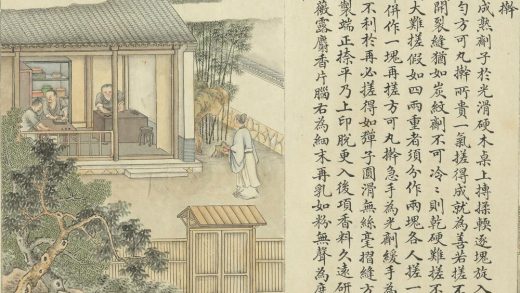 擀
成熟劑子於光滑硬木桌上摶揉輭逐塊旋入
勻方可丸擀所貴一氣搓得成就為善若搓不
開裂縫猶如炭紋劑不可冷〻則乾硬難搓不
大難搓假如四兩重者須分作兩塊各人搓一
併作一塊再搓方可丸擀急手為光劑緩手為
不利於再必搓得如彈子圓滑無絲毫摺縫方
製端正捺平乃上印脫更入後項香料久遠研
薇露麝香片腦右為細末再乳如粉無聲為度